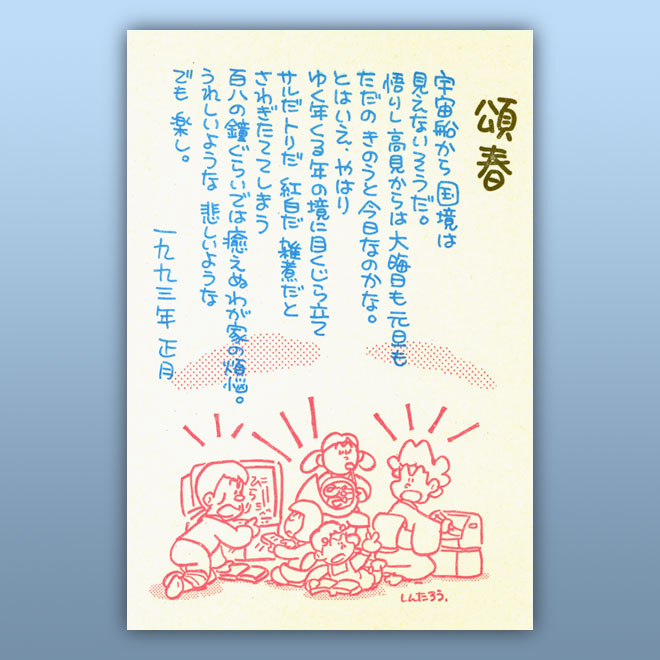 頌春
宇宙船から国境は
見えないそうだ。
悟りし高見からは大晦日も元旦も
ただの きのうと今日なのかな。
とはいえ、やはり
ゆく年くる年の境に目くじら立て
サルだトリだ 紅白だ 雑煮だと
さわぎたててしまう
百八の鐘ぐらいでは癒えぬわが家の煩悩。
うれしいような 悲しいような
でも 楽し。
一九九三年 正月
しんたろう.